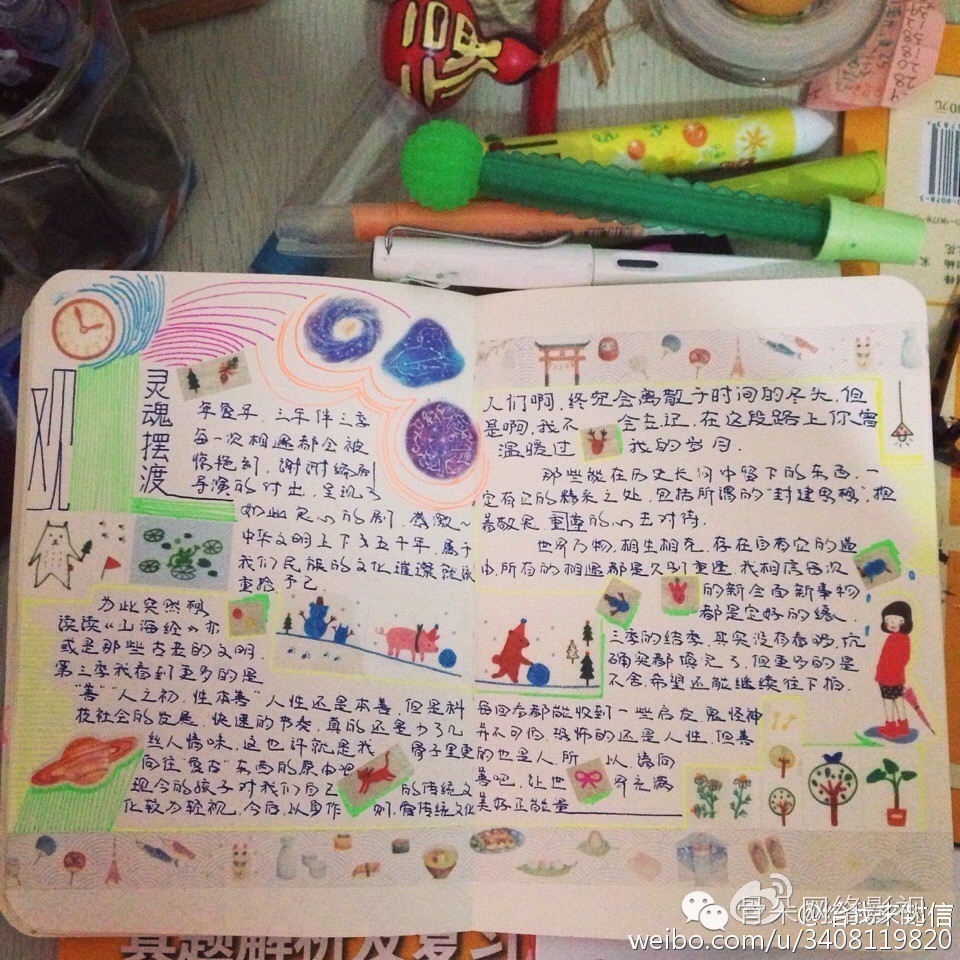 灵魂摆渡
年复年，三年伴三季
每一次相遇都会被
惊艳到，谢谢编剧
导演的付出，呈现了
如此走心的剧，感激～
中华文明上下5五千年，属于
我们民族的文化璀璨
为此突然想
读读《山海经》亦
或是那些古老的文明，
第三季我看到更多的是
“善”“人之初，性本善”人性还是本善，但是科
技社会的发展，快速的节奏，真的还是少了几
丝人情味，这也许就是我 骨子里更
向往“复古”东西的原由吧
现今的孩子对我们自己 的传统文
化较为轻视，今后，以身作 则，爱传统文化
人们啊，终究会离散于时间的尽头，但
是啊，我不 会忘记，在这段路上你曾
温暖过 我的岁月．
那些能在历史长河中留下的东西，一
定有它的精采之处，包括所谓的“封建思想”，抱
着敬畏 的心去对待．
世界万物，相生相克，存在自有它的
由，所有的相遇都是久别重逢，我相信每次
的新会面新事物
都是定好的缘
三季的结季，其实没有看够，坑
确实都填完了，但更多的是
不舍，希望还能继续往下拍．
每回合都能收到一些启发，鬼怪神
并不可怕，恐怖的还是人性，但善
的也是人，所 以，请向
善吧，让世 界充满
美好正能量
真题解析及复习
骨朵网络影视
@给我来封信
weibo.com/u/3408119820